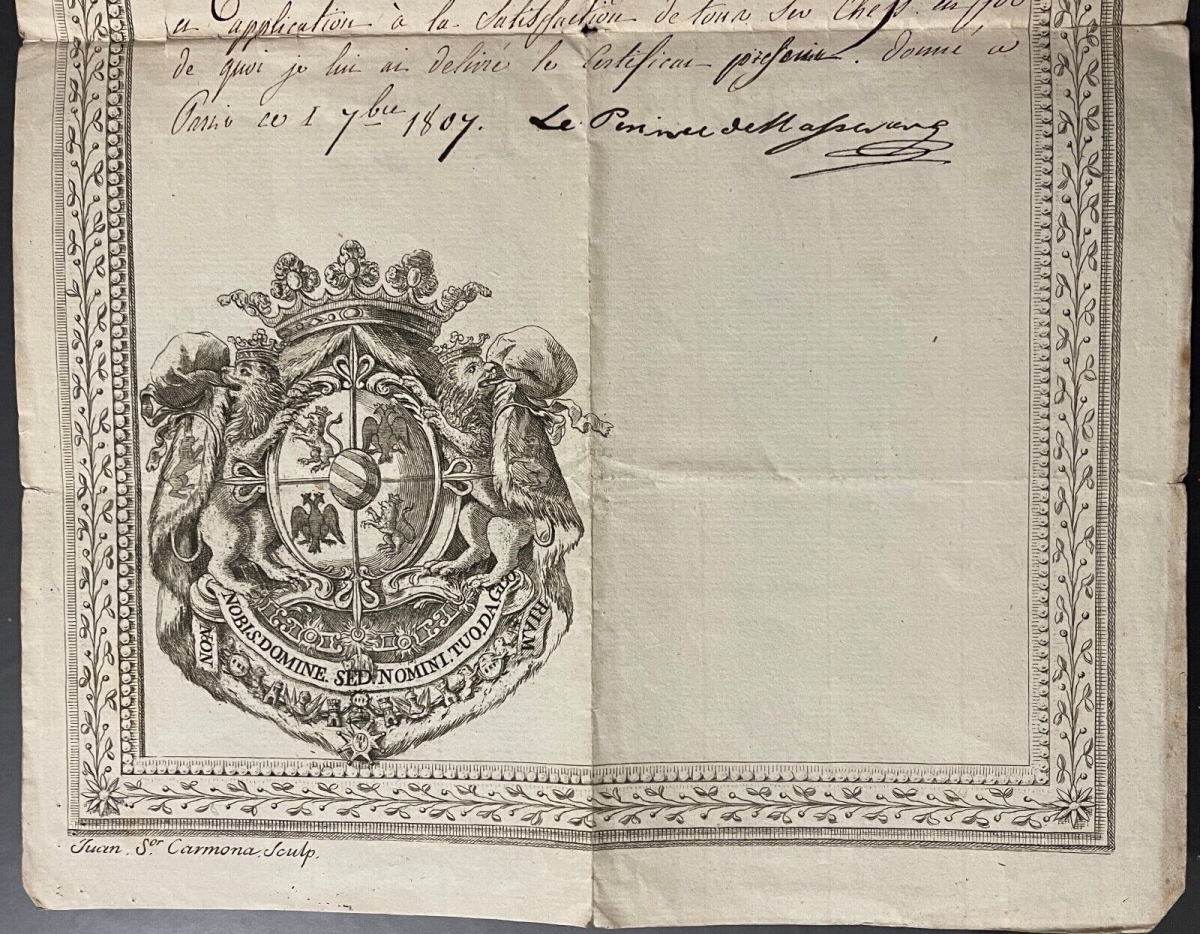 et application à la Satisfaction de tous Ses Chefs. en foi
de quoi je lui ai delivré le Certificat présent. donné a
Paris ce 1 7.bre 1807. Le Prince de Masserano
NON. NOBIS. DOMINE. SED. NOMINI. TUO. DA GLORIAM
Juan. S.or Carmona. Sculp.